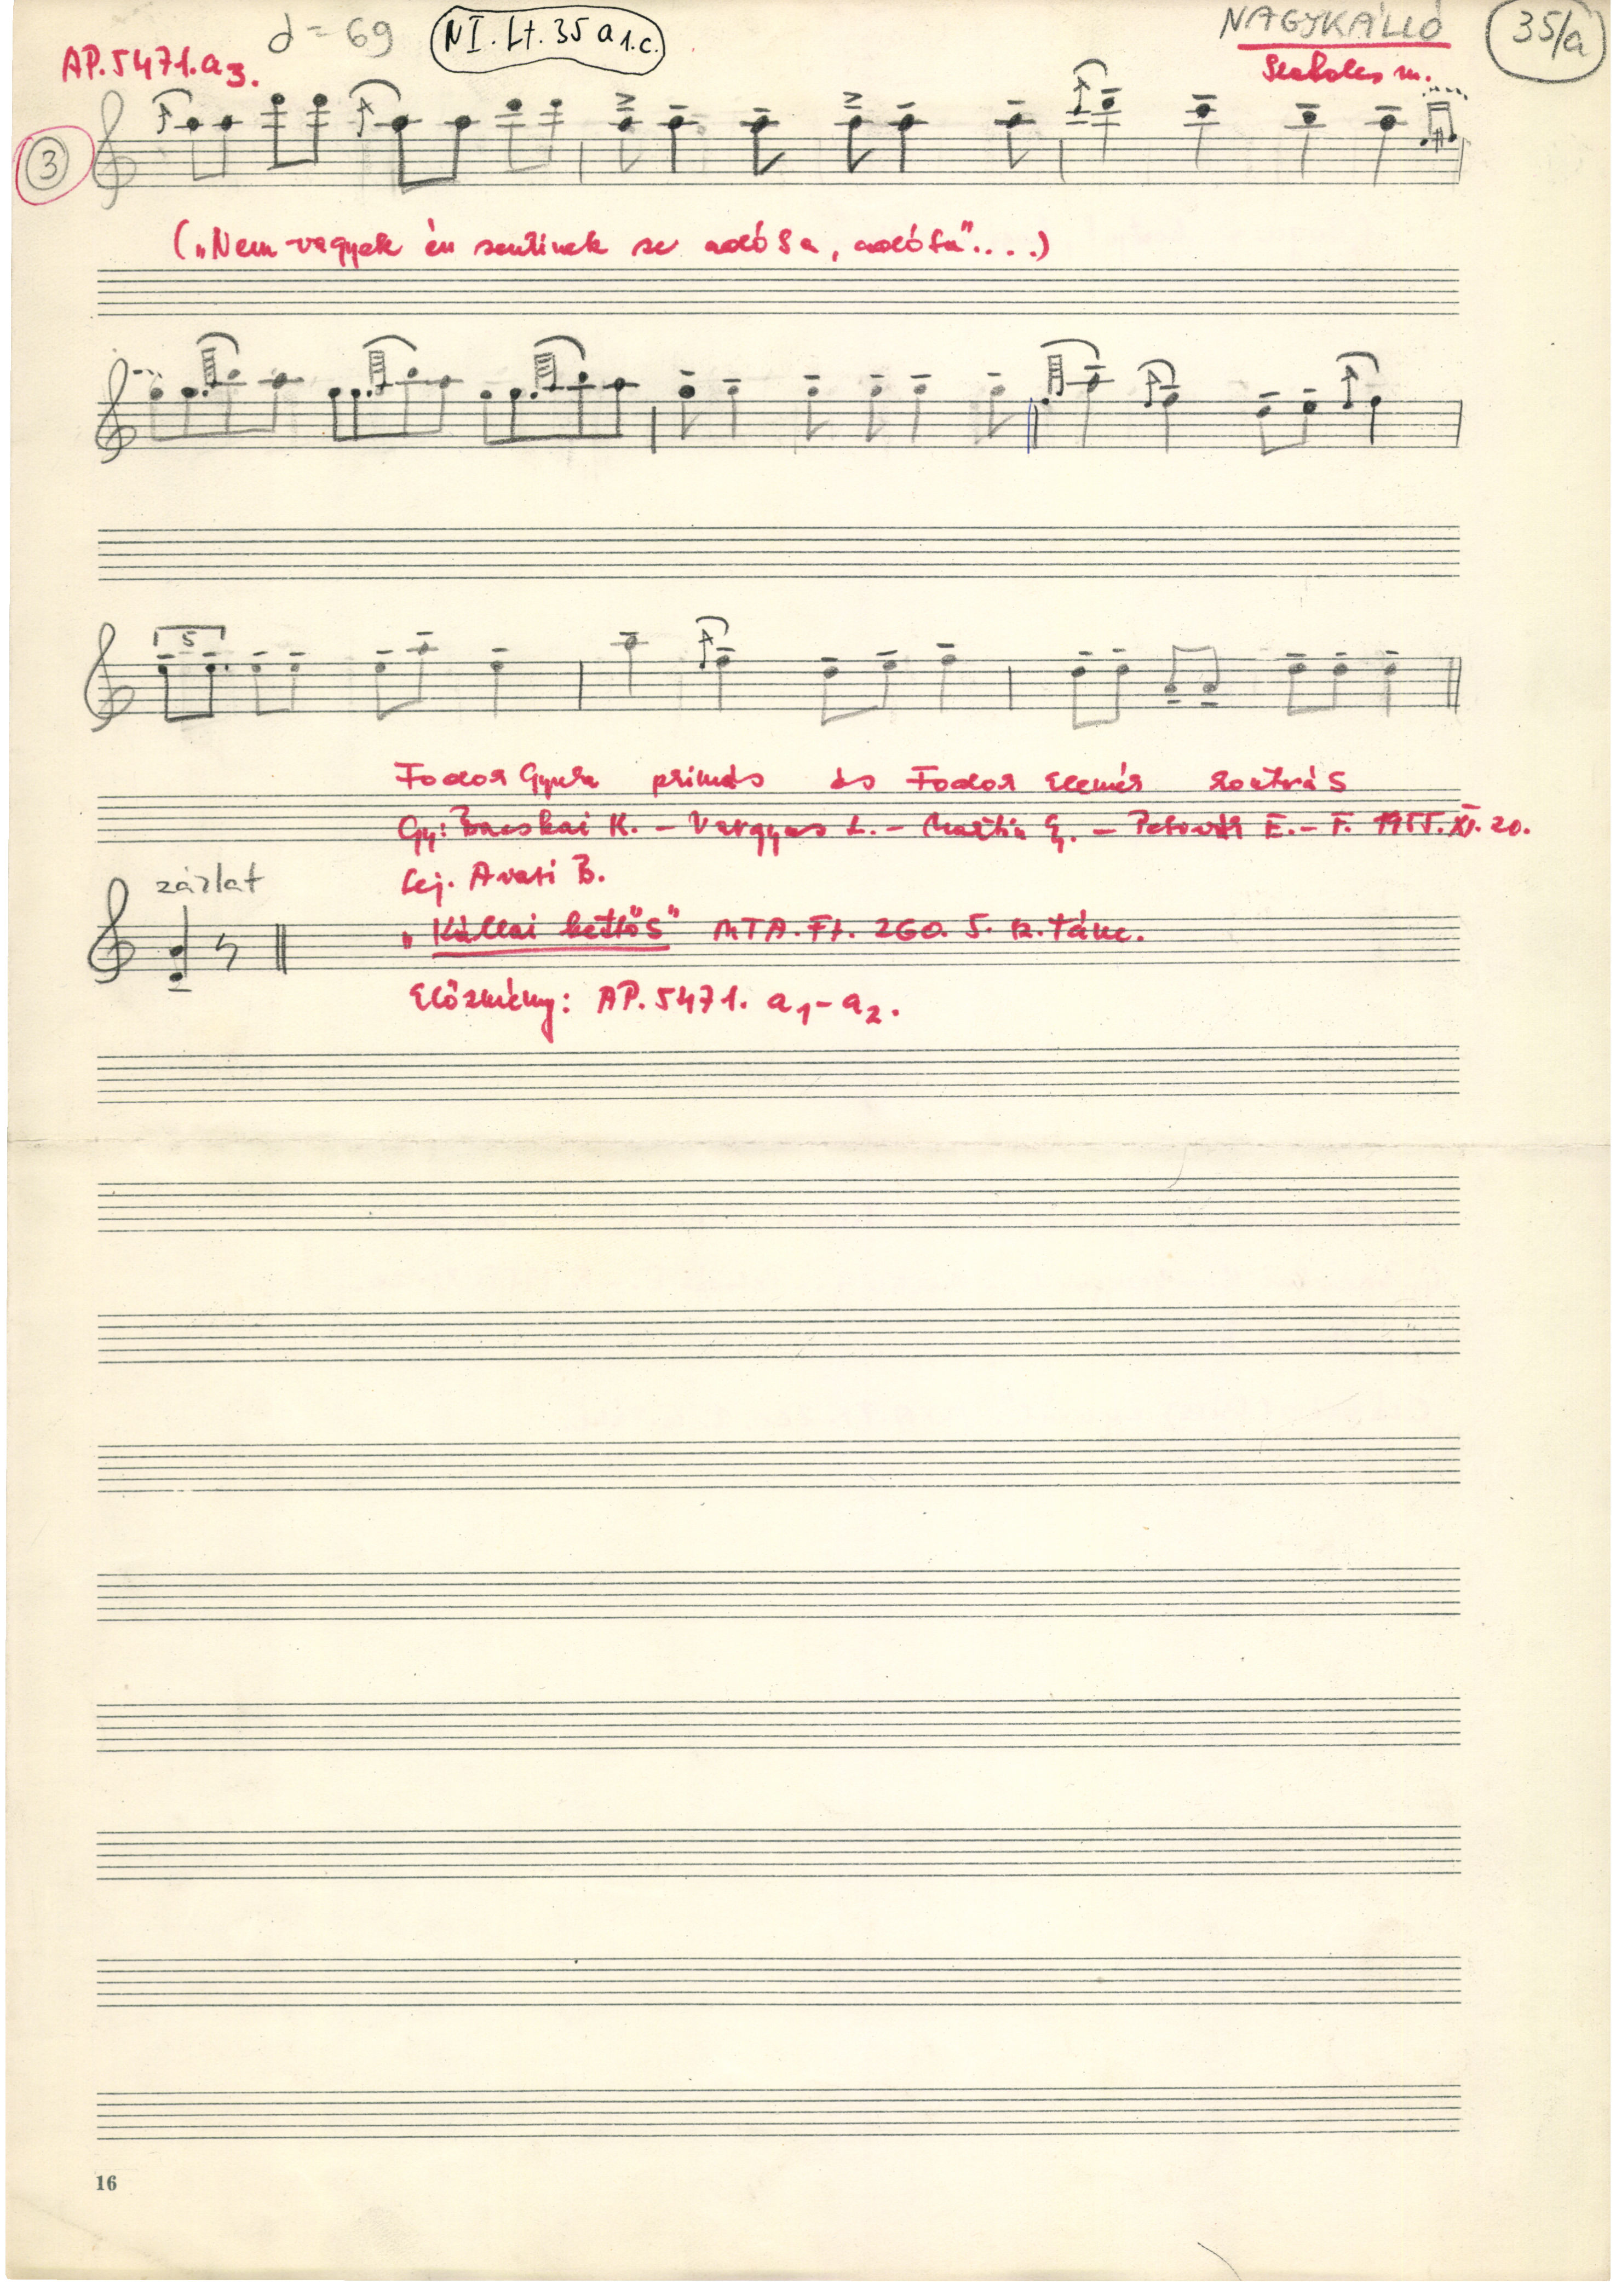 d = 69
NI. Lt. 35 a 1.c.
NAGYKÁLLÓ
35/a
AP. 5471. a3.
Szabolcs m.
3
("Nem vagyok én senkinek se adósa, adósa"....)
5
Fodor Gyula prímás és Fodor Elemér kontrás
Gy: Bacskai K. – Vargyas L. – Martin Gy. – Petrovár E. – F. 1955. XI. 20.
zárlat
Lej. Avasi B.
"Kállai kettős" MTA. Ft. 260. 5. sz. tánc.
Előzmény: AP. 5471. a1 – a2.
16